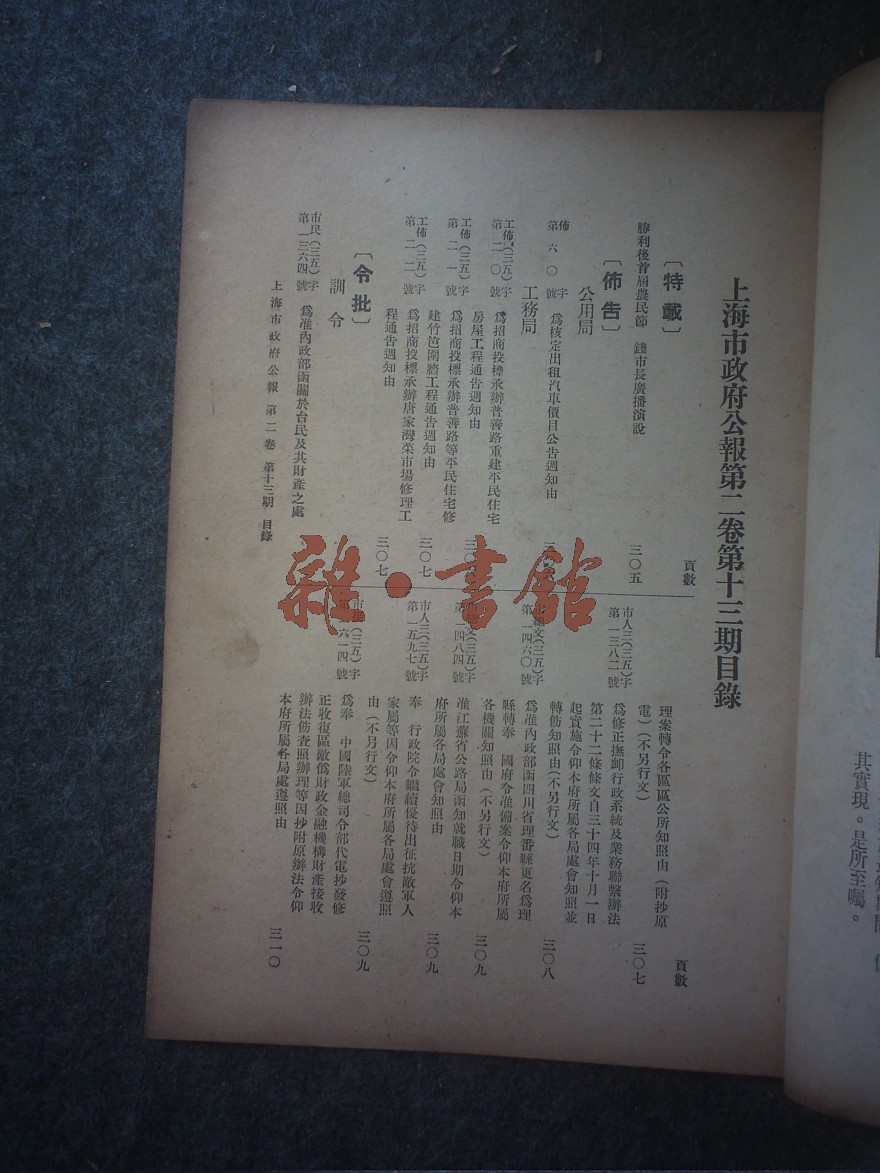 上海市政府公報第二卷第十三期目錄
頁數
〔特載〕
勝利後首屆農民節 錢市長廣播演說
三〇五
〔佈告〕
公用局
佈字第六〇號
為核定出租汽車價目公告週知由
工務局
工佈(三五)字第二〇號
為招商投標承辦普善路重建平民住宅
房屋工程通告週知由
工佈(三五)字第二一號
為招商投標承辦普善路等平民住宅修
建竹笆圍牆工程通告週知由
三〇七
工佈(三五)字第二二號
為招商投標承辦唐家灣菜市場修理工
程通告週知由
三〇七
〔令批〕
訓令
市民(三五)字第一三六四號
為准內政部函關於台民及其財產之處
頁數
理案轉令各區區公所知照由(附抄原
電)(不另行文)
三〇七
市人三(三五)字第一三八二號
為修正撫卹行政系統及業務聯繫辦法
第二十二條條文自三十四年十月一日
起實施令仰本府所屬各局處會知照並
轉飭知照由(不另行文)
三〇八
文(三五)字第一四六〇號
為准內政部函四川省理番縣更名為理
縣轉奉 國府令准備案令仰本府所屬
各機關知照由(不另行文)
三〇九
文(三五)字第一四八四號
准江蘇省公路局函知就職日期令仰本
府所屬各局處會知照由
三〇九
市人三(三五)字第一五九七號
奉 行政院令繼續優待出征抗敵軍人
家屬等因令仰本府所屬各局處會遵照
由(不另行文)
三〇九
(三五)字
六一四號
為奉 中國陸軍總司令部代電抄發修
正收復區敵偽財政金融機構財產接收
辦法飭查照辦理等因抄附原辦法令仰
本府所屬各局處遵照由
三一〇
上海市政府公報 第二卷 第十三期 目錄
其實現。是所至囑。
雜·書館